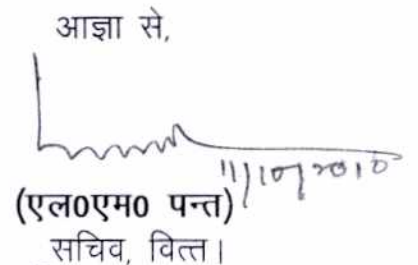 आज्ञा से,
11/10/2010
(एल0एम0 पन्त)
सचिव, वित्त।